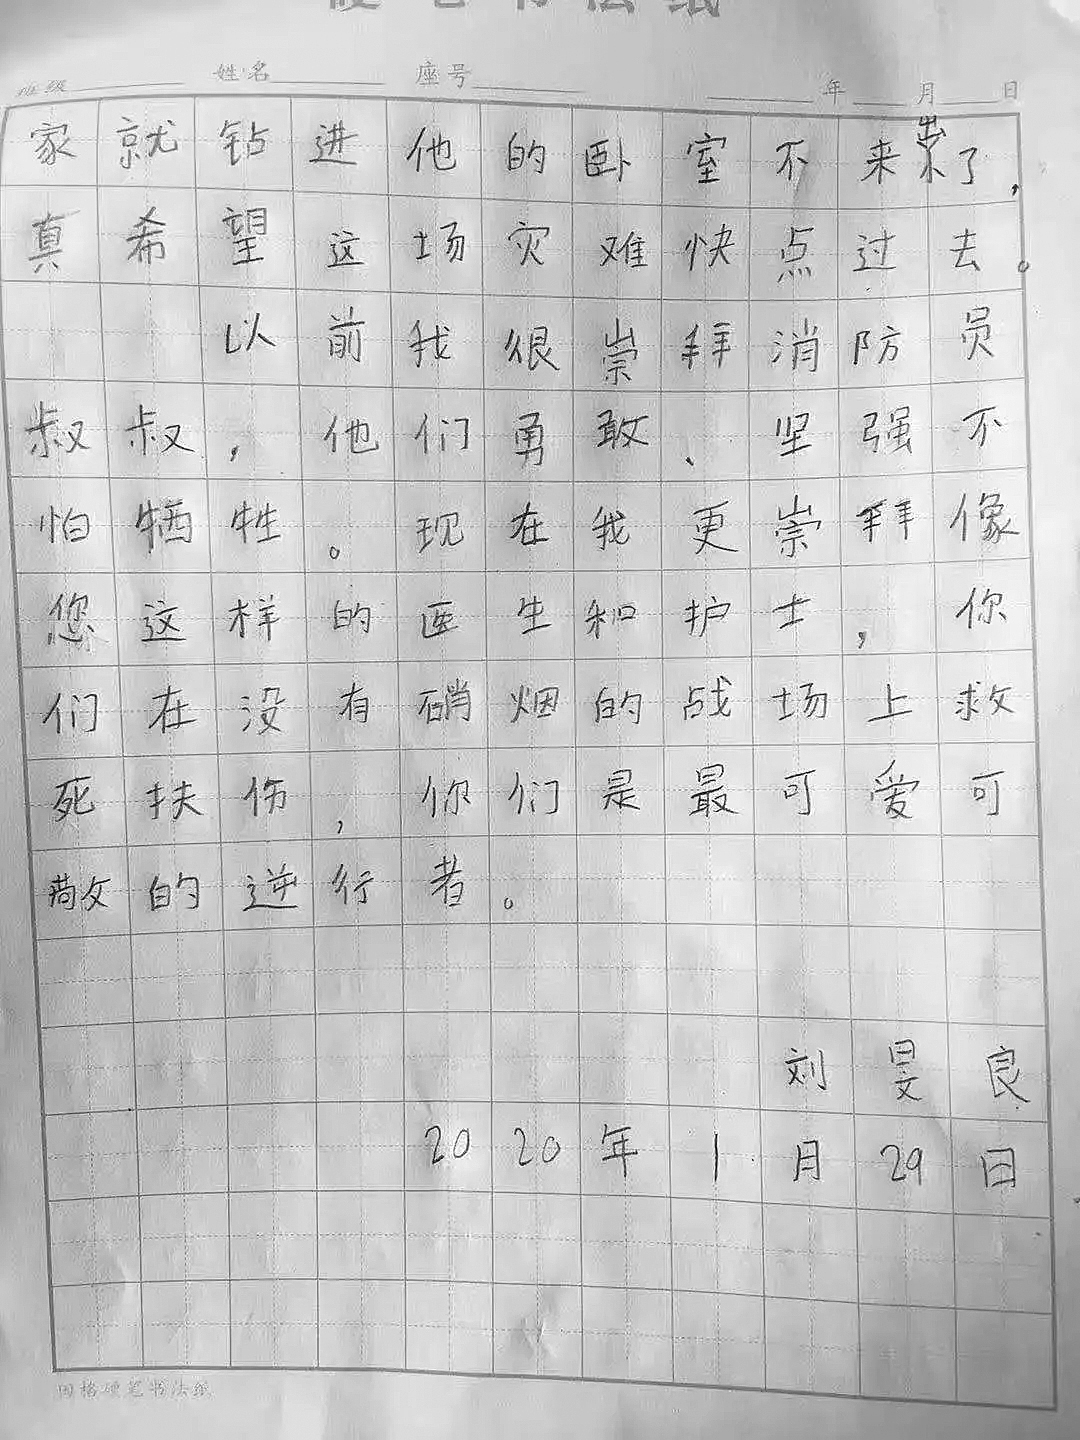 硬笔书法纸
班级 姓名 座号 年 月 日
家就钻进他的卧室不来了，
真希望这场灾难快点过去。
以前我很崇拜消防员
叔叔，他们勇敢、坚强不
怕牺牲。现在我更崇拜像
您这样的医生和护士，你
们在没有硝烟的战场上救
死扶伤，你们是最可爱可
敬的逆行者。
刘旻良
2020年1月29日
田格硬笔书法纸